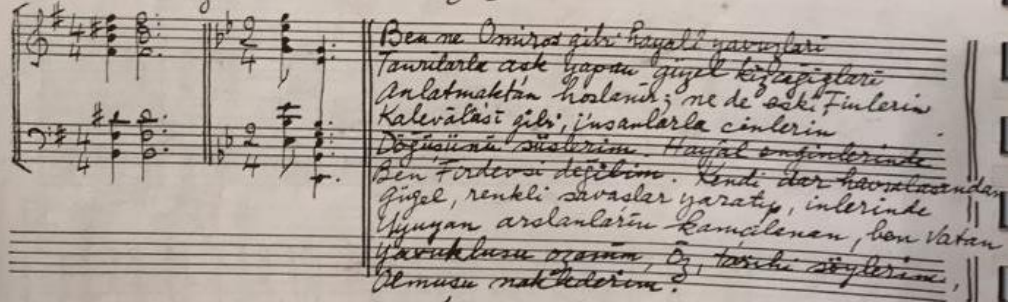 Ben ne Omiros gibi hayalî yavuzları
Tanrılarla aşk yapan güzel kızcağızları
Anlatmaktan hoşlanır; ne de eski Finlerin
Kalevalası gibi, insanlarla cinlerin
Döğüşünü süslerim. Hayal enginlerinde
Ben Firdevsi değilim. Kendi dar havsalasından
Güzel, renkli savaşlar yaratıp, inlerinde
Uyuyan arslanların kamçılanan, ben Vatan
Yavuklusu ozanım, Öz, tarihi söylerim,
Olmuşu naklederim.
4 4
2 4
4 4
2 4